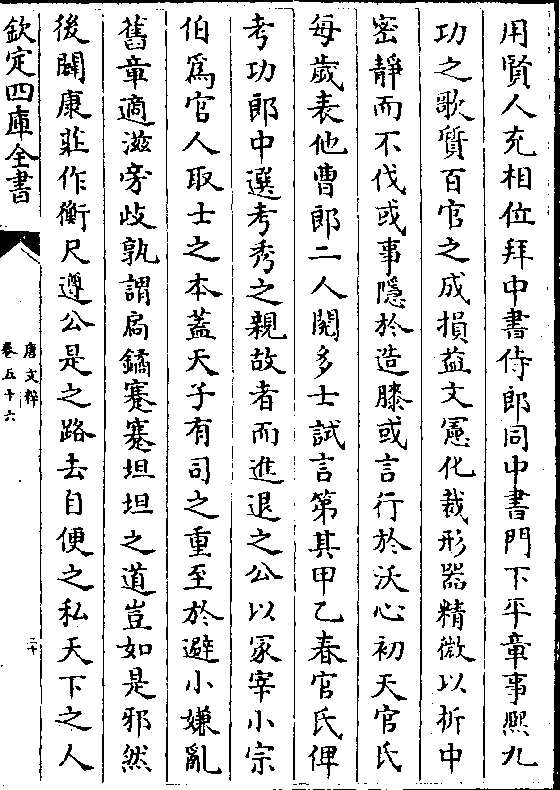 用賢人充相位拜中書侍郎同中書門下平章事熈九
功之歌質百官之成損益文憲化裁形器精微以折中
密靜而不伐或事隱於造膝或言行於沃心初天官氏
每歲表他曹郎二人閱多士試言第其甲乙春官氏俾
考功郎中選考秀之親故者而進退之公以冢宰小宗
伯爲官人取士之本蓋天子有司之重至於避小嫌亂
舊章適滋旁歧孰謂扃鐍蹇蹇坦坦之道豈如是邪然
後闢康莊作衡尺遵公是之路去自便之私天下之人
欽定四庫全書
唐文粹
卷五十六
二十